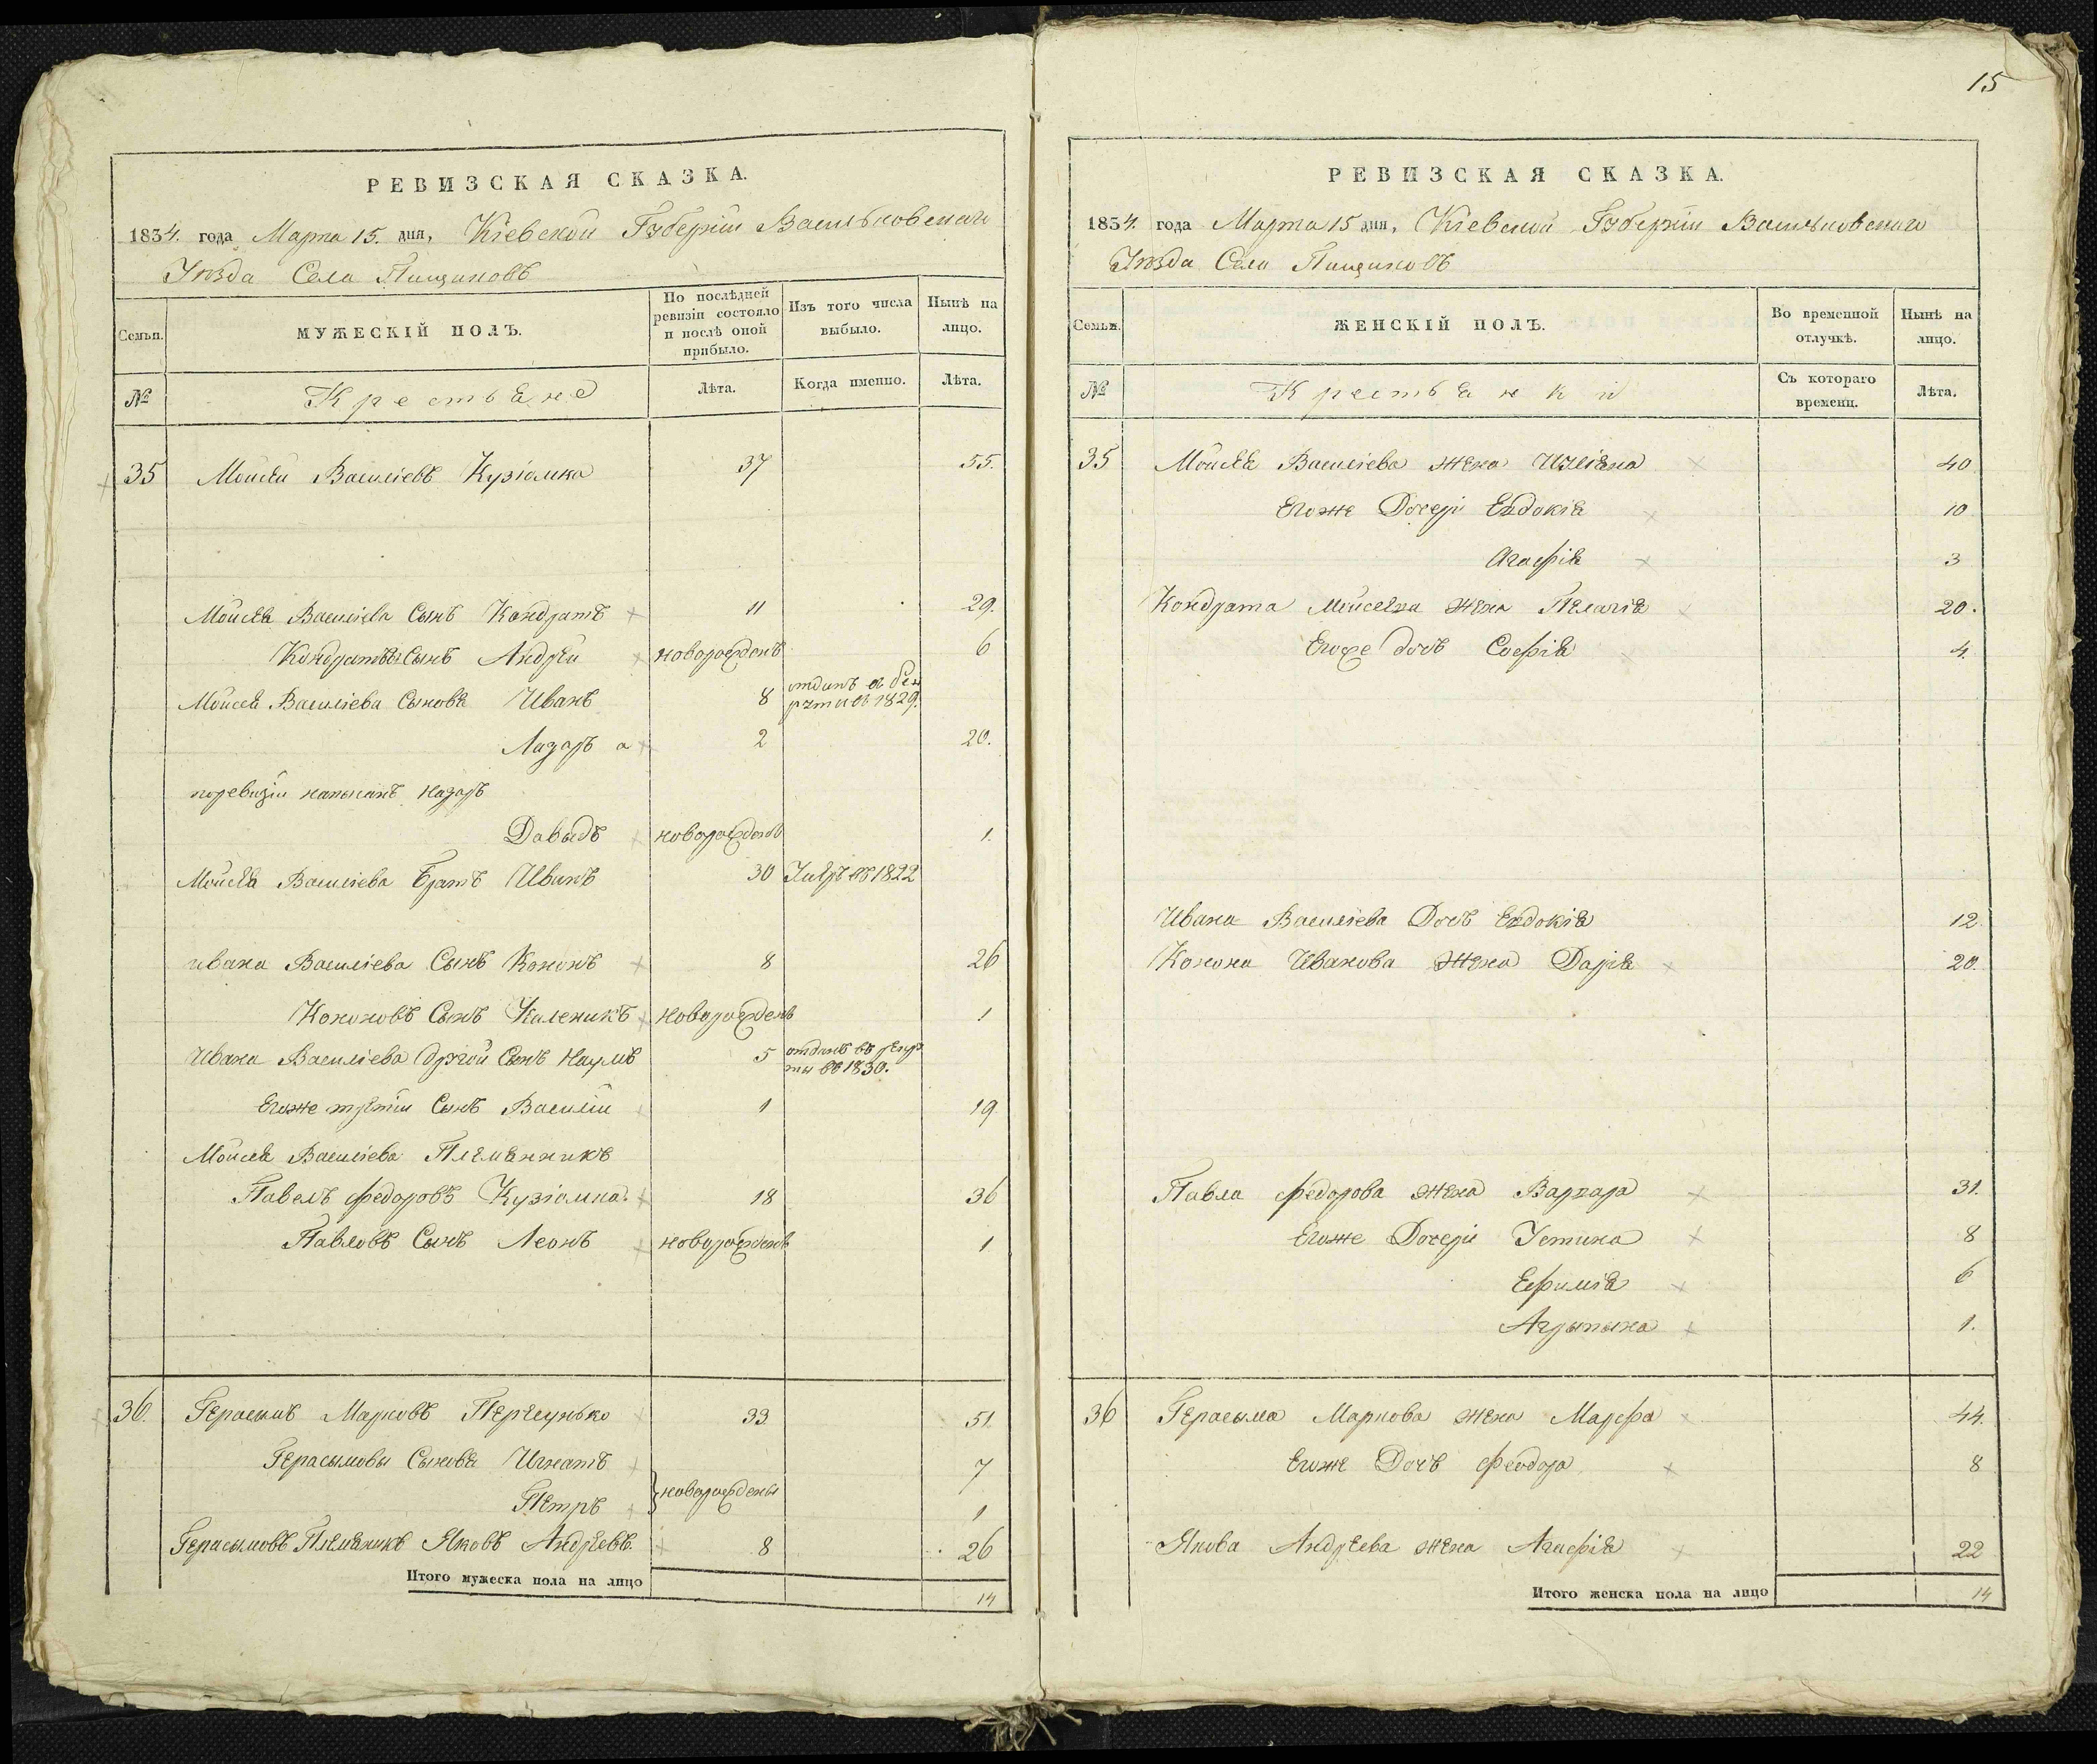 РЕВИЗСКАЯ СКАЗКА.
1834. года Марта 15. дня, Кіевской Губерніи Васильковскаго
Уѣзда Села Пищиковъ
Семьи.
МУЖЕСКІЙ ПОЛЪ.
По послѣдней ревизіи состояло и послѣ оной прибыло.
Изъ того числа выбыло.
Нынѣ на лицо.
№
Крестьяне
Лѣта.
Когда именно.
Лѣта.
35 Моисей Василіевъ Кузіомка 37 55.
Моисея Василіева Сынъ Кондратъ 11 29.
Кондратовъ Сынъ Андрей новорожденъ 6
Моисея Василіева Сыновя Иванъ 8 отданъ в 1829.
Лазаръ а 2 20.
поревизіи написанъ Назаръ
Давыдъ новорожденъ 1.
Моисея Василіева Братъ Иванъ 30 Умеръ въ 1822
ивана Василіева Сынъ Кононъ 8 26
Кононовъ Сынъ Каленикъ новорожденъ 1
Ивана Василіева другой Сынъ Наумъ 5 отданъ въ рекру
ты въ 1830.
Егоже третій Сынъ Василій 1 19
Моисея Василіева Племянникъ
Павелъ Федоровъ Кузіомка 18 36
Павловъ Сынъ Леонъ новорожденъ 1
36. Герасимъ Марковъ 33 51.
Герасымовы Сыновя Игнатъ 7
Петръ новорождены 1
Герасымовъ Племяникъ Яковъ Андреевъ 8 26
Итого мужеска пола на лицо 14
15
РЕВИЗСКАЯ СКАЗКА.
1834. года Марта 15 дня, Кіевской Губерніи Васильковскаго
Уѣзда Села Пищиковъ
Семьи.
ЖЕНСКІЙ ПОЛЪ.
Во временной отлучкѣ.
Нынѣ на лицо.
№
Крестьянки
Съ котораго времени.
Лѣта.
35 Моисея Василіева жена Иуліяна 40
Егоже Дочери Евдокія 10
Агафія 3
Кондрата Моисеева жена Пелагія 20.
Егоже дочь Софія 4.
Ивана Василіева Дочь Евдокія 12
Конона Иванова жена Дарія 20.
Павла Федорова жена Варвара 31.
Егоже Дочери Устина 8
Ефимія 6
Агрыпына 1.
36 Герасыма Маркова жена Марфа 44.
Егоже Дочь Феодора 8
Якова Андреева жена Агафія 22
Итого женска пола на лицо 14